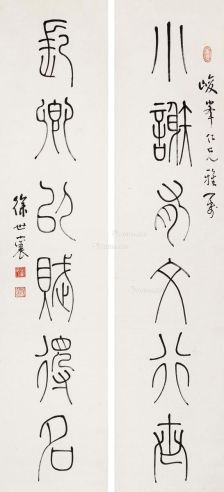 峻峯仁兄雅属
小謝有文行世
長卿以賦得名
徐世襄